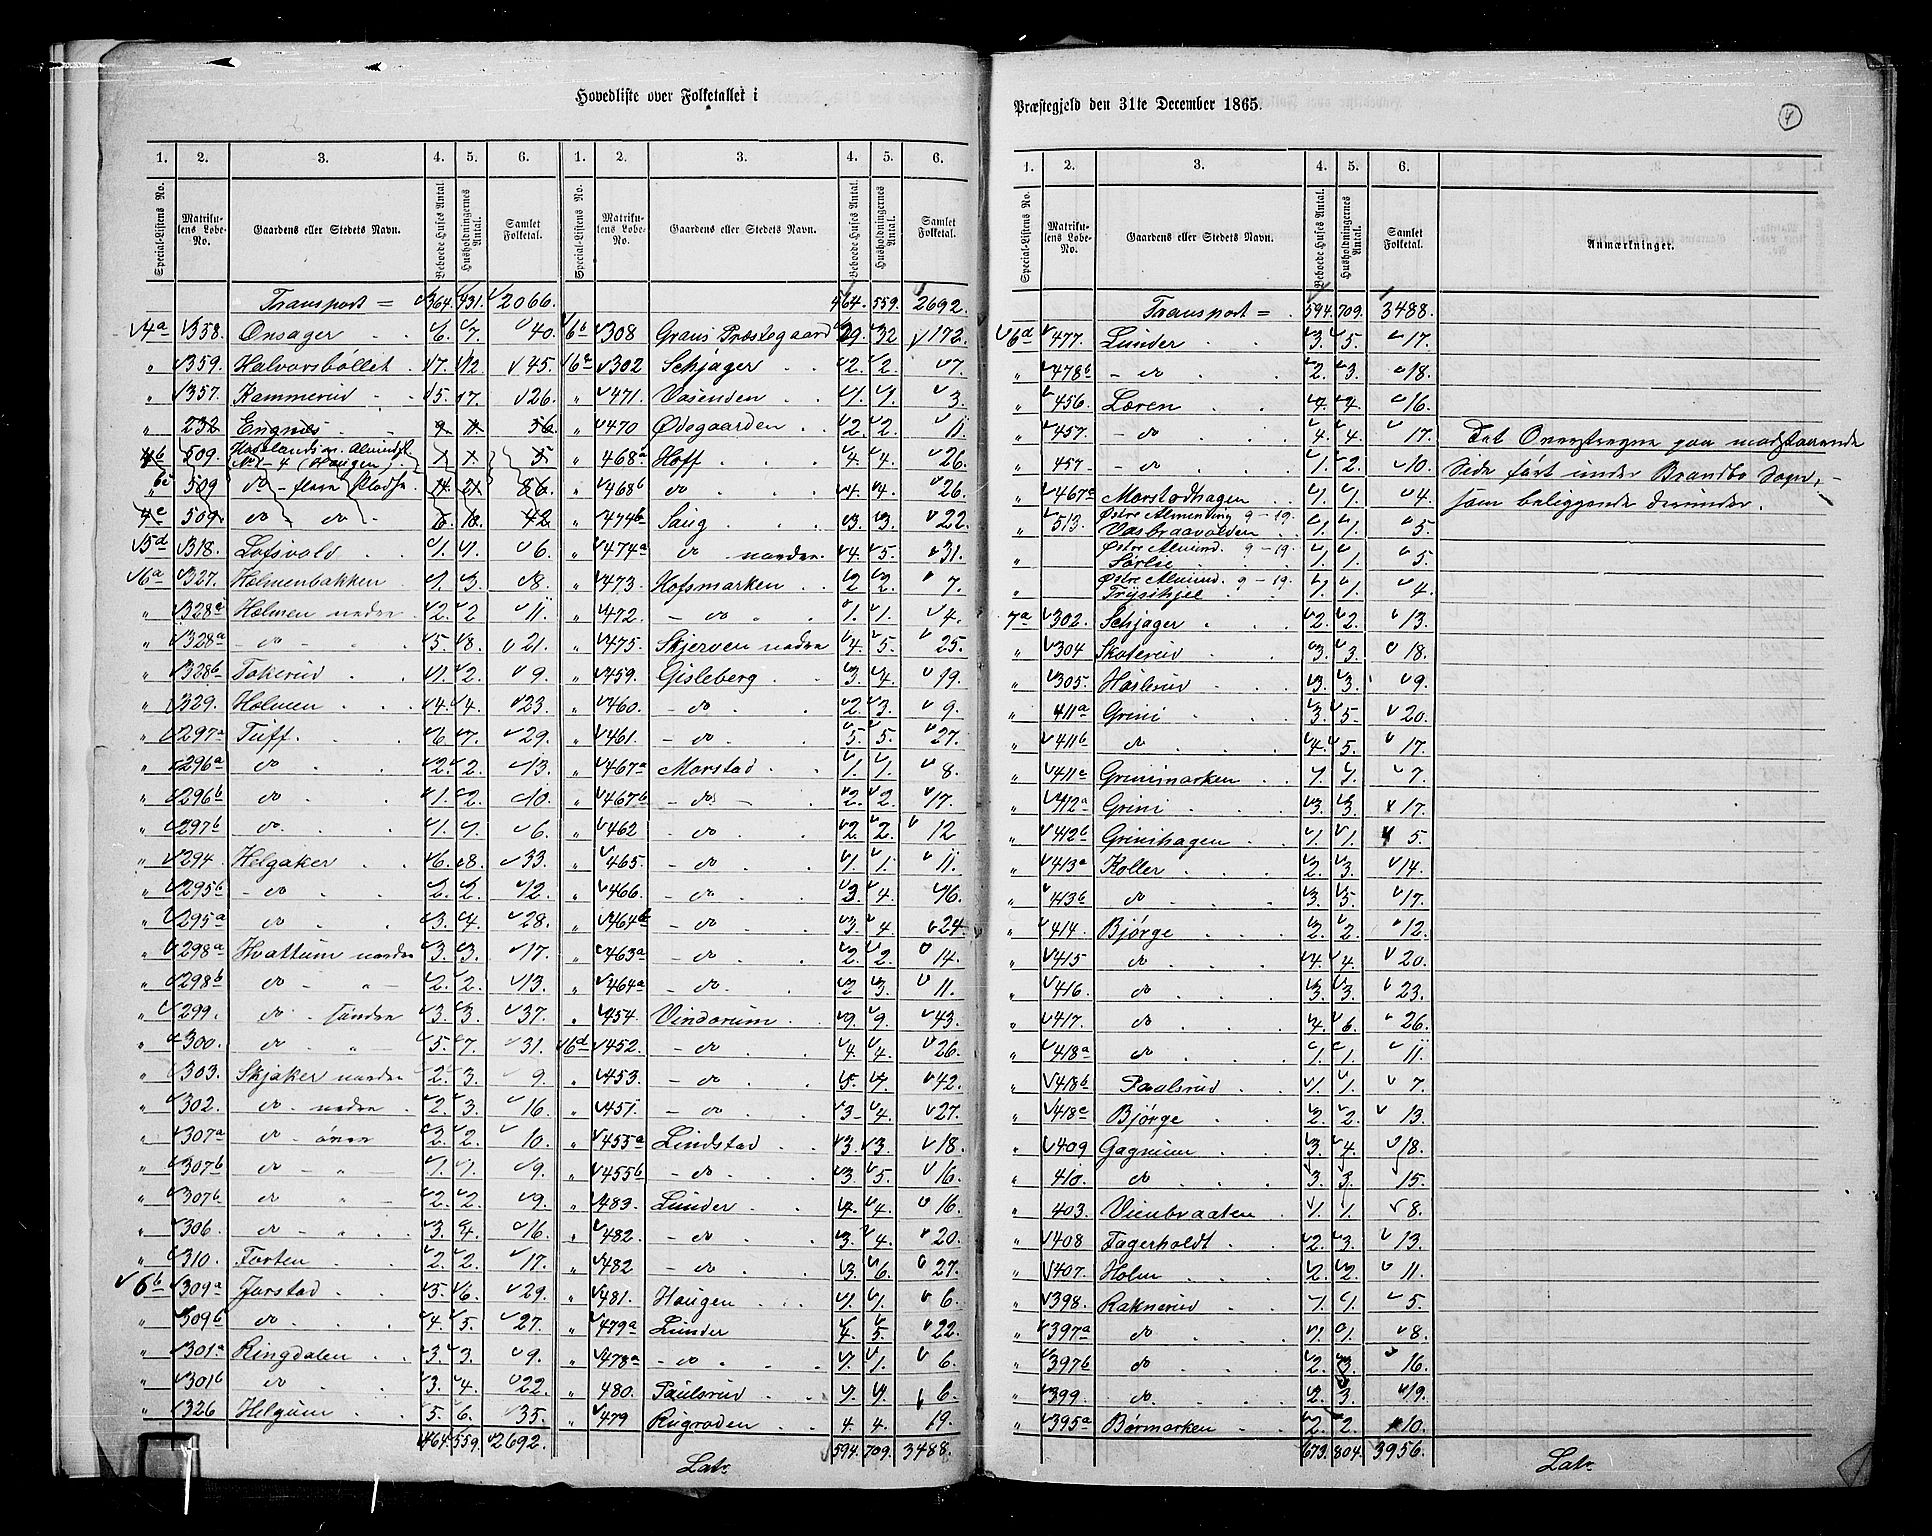 Hovedliste over Folketallet i
1. 2. 3. 4. 5. 6. 1. 2. 3. 4. 5. 6.
Special-Listens No. Matrikulens Løbe-No. Gaardens eller Stedets Navn. Beboede Huses Antal. Husholdningernes Antal. Samlet Folketal. Special-Listens No. Matrikulens Løbe-No. Gaardens eller Stedets Navn. Beboede Huses Antal. Husholdningernes Antal. Samlet Folketal.
Transport = 364. 431. 2066.
4a 358. Onsager 6. 7. 40.
" 359. Halvorsbøllet 7. 12. 45.
" 357. Kammerud 5. 7. 26.
" 232 Engnæs 9. 11. 56.
4b 509. No 1 - 4 (Haugen) 1. 1. 5.
" 509 do - flere Pladse 14. 21. 86.
4c 509. do do 6. 18. 42
5d 318. Lofsvold 1. 1. 6.
6a 327. Holmenbakken 1. 3. 8.
" 328a Holmen nedre 2. 2 11.
" 328a - do - 5. 8. 21.
" 328b Tokerud 1. 2. 9.
" 329. Holmen 4. 4. 23.
" 297a Tuff. 6. 7. 29.
" 296a do 2. 2. 13.
" 296b do 1. 2. 10.
" 297b do. 1. 1. 6.
" 294. Helgaker 6. 8. 33.
" 295b - do 2. 2. 12.
" 295a do 3. 4. 28.
" 298a Hvattum nordre 3. 3. 17.
" 298b do - " - 2. 2. 13.
" 299. do - søndre 3. 3. 37.
" 300. do - " 5. 7. 31.
" 303. Skjaker nordre 2. 3. 9.
" 302. do - nedre 2. 3. 16.
" 307a do - øvre 2. 2. 10.
" 307b do - " 1. 1. 9.
" 307b do " - 2. 2. 9.
" 306. do - " 3. 4. 16.
" 310. Forten 2. 2. 17.
6b 309a Jorstad 5. 6. 29.
" 309b do 4. 5. 27.
" 301a Ringdalen 3. 3. 9.
" 301b do 3. 4. 22.
" 326 Helgum 5. 6. 35.
464. 559. 2692.
464. 559. 2692.
6b 308 Grans Præstegaard 29. 32 172.
6a 302 Schjager 2. 2. 7.
" 471. Vasenden 1. 1. 3.
" 470 Ødegaarden 2. 2. 11.
" 468a Hoff 4. 4. 26.
" 468b do 4. 4. 26.
" 474b Saug 3. 3. 22.
" 474a do nordre 4. 5. 31.
" 473. Hofsmarken 2 2. 7.
" 472. - do " 1. 1. 4.
" 475. Skjerven nedre 4. 5. 25.
" 459. Gisleberg 3. 4. 19.
" 460. - do 2. 3. 9.
" 461. - do 5. 5. 27.
" 467a Morstad 1. 1. 8.
" 467b - do - 2. 2. 17.
" 462 - do 2. 2. 12
" 465. - do 1. 1. 11.
" 466. - do 3. 4. 16.
" 464b - do 3. 4. 24.
" 463a - do 2. 2. 14.
" 464a - do. 2 3. 11.
" 454. Vindorum 9. 9. 43.
6d 452. - do 4. 4. 26.
" 453. - do 5. 7. 42.
" 451. - do 3 4. 27.
" 455a Lindstad 3. 3. 18.
" 455b - do. 3. 5. 16.
" 483. Lunder 4. 4. 16.
" 482. - do 3. 4. 20.
" 482 - do 3. 6. 27.
" 481. Haugen 1. 1. 6.
" 479a Lunder 4. 5. 22.
" 478a - do 1. 1. 6.
" 480. Paulsrud 1. 1. 6.
" 479 Rugroden 4. 4. 19.
594. 709. 3488.
Lat.
Præstegjeld den 31te December 1865.
4
1. 2. 3. 4. 5. 6.
Special-Listens No. Matrikulens Løbe-No. Gaardens eller Stedets Navn. Beboede Huses Antal. Husholdningernes Antal. Samlet Folketal. Anmærkninger.
Transport = 594. 709. 3488.
6d 477. Lunder 3. 5. 17.
" 478b - do 2. 3. 18.
" 456. Læren 4. 4. 16.
" 457. - do 4. 4. 17.
" 457 - do 1. 2. 10.
" 467a Morstadhagen 1. 1. 4.
" 513. Østre Almending 9 - 19.
Vasbraavolden 1. 1. 5.
Østre Almind. 9 - 19.
" Sørlie 1. 1. 5.
Østre Almind. 9 - 19.
" Trysihjel 1. 1. 4.
7a 302. Schjager 2. 2. 13.
" 304 Skoterud 3. 3. 18.
" 305. Haslerud 3. 3. 9.
" 411a Grini 3. 5. 20.
" 411b do 4. 5. 17.
" 411c Grinimarken 1. 1. 7.
" 412a Grini 3. 3. 17.
" 412b Grinihagen 1. 1. 5.
" 413a Koller 2. 3. 14.
" 413b do 3. 5. 17.
" 414. Bjørge 2. 2. 12.
" 415 do 4. 4. 20.
" 416. do 3. 3. 23.
" 417. do 4. 6. 26.
" 418a do 1. 1. 11.
" 418b Paalsrud 1. 1. 7.
" 418c Bjørge 2. 2. 13.
" 409 Gagnum 3. 4. 18.
" 410. do 3. 3. 15.
" 403. Vienbraaten 1. 1. 8.
" 408 Fagerholdt 2. 3. 13.
" 407. Holm 2. 2. 11.
" 398. Raknerud 1. 1. 5.
" 397a do 1. 1. 8.
" 397b do 2. 3. 16.
" 399. do 2. 3. 19.
" 395a Børmarken 2. 2. 10.
673. 804. 3956.
Det Overstregne paa modstaaende
Side ført under Brandbo Sogn,
som beliggende derunder.
Lat.